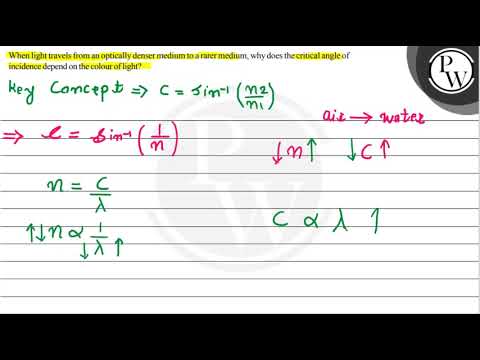 When light travels from an optically denser medium to a rarer medium, why does the critical angle of
incidence depend on the colour of light?
Key Concept ⇒ C = sin⁻¹ (n2/n1)
air → water
⇒ C = sin⁻¹ (1/n)
↓n↑ ↓C↑
n = C/λ
↑↓n ∝ 1/λ ↓ ↑
C ∝ λ ↑
PW